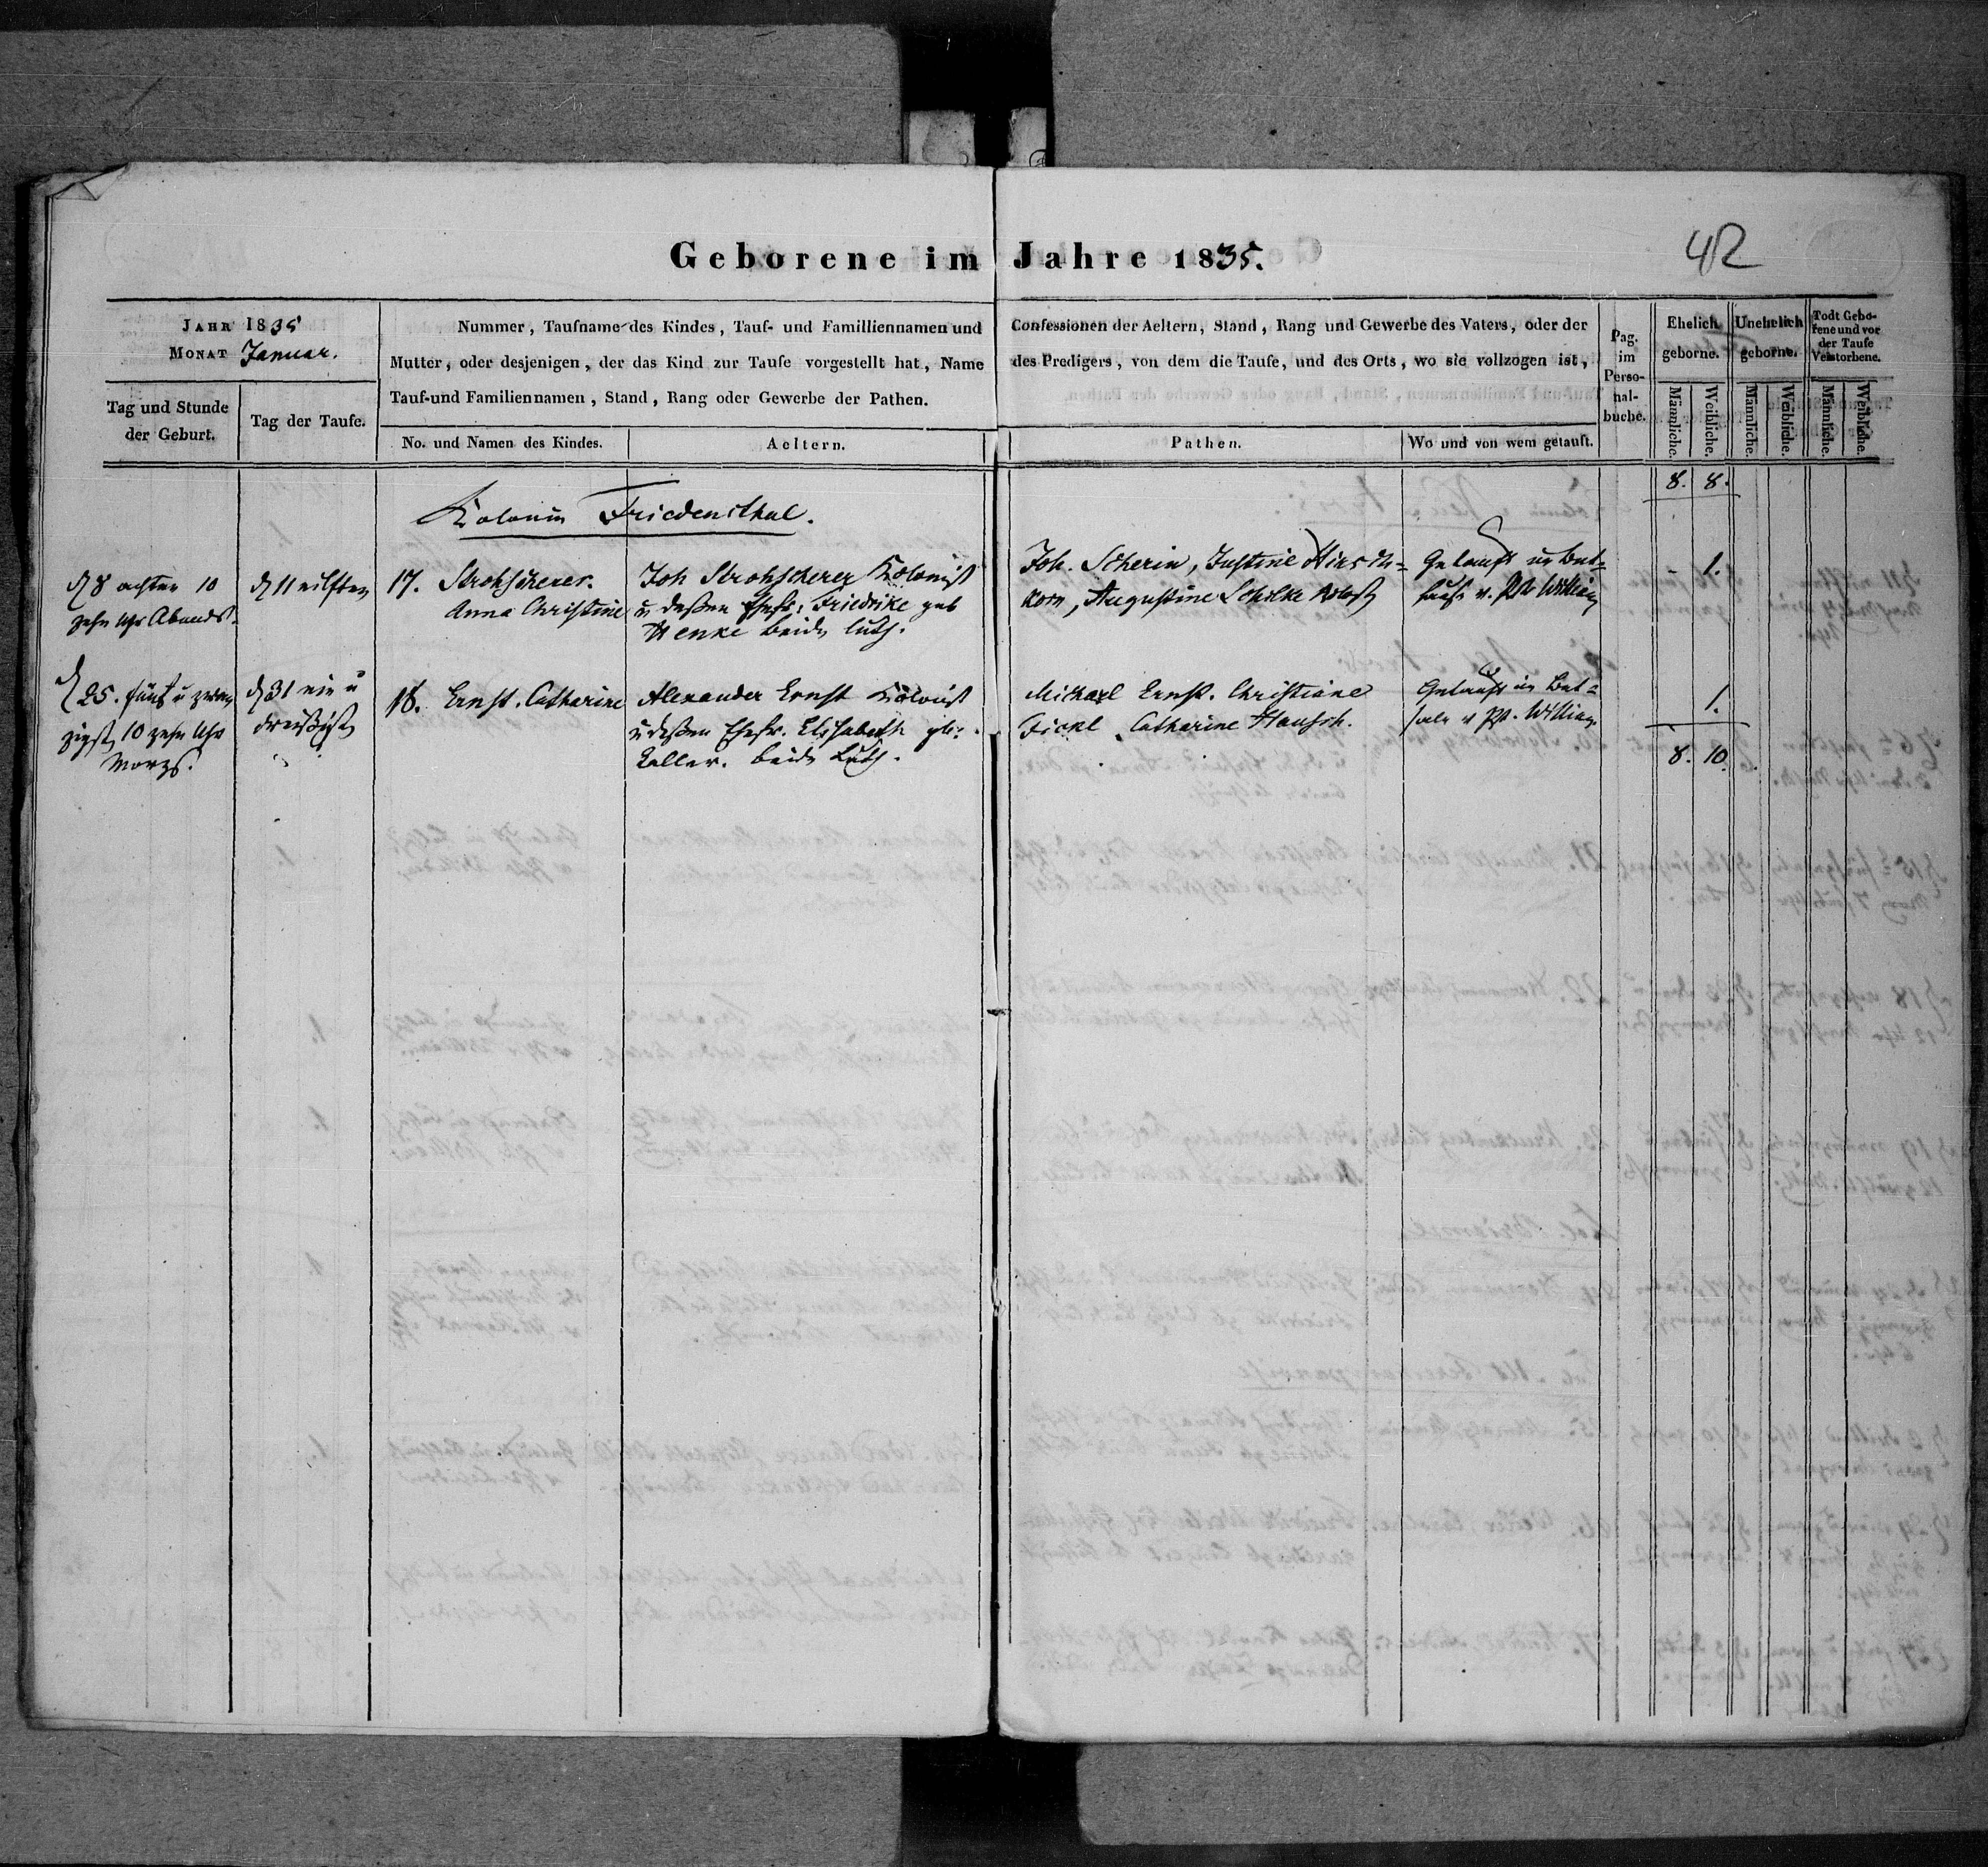 Geborene im Jahre 1835.
42
JAHR 1835
MONAT Januar.
Tag und Stunde
der Geburt.
Tag der Taufe.
Nummer, Taufname des Kindes, Tauf- und Familliennamen und
Mutter, oder desjenigen, der das Kind zur Taufe vorgestellt hat, Name
Tauf-und Familiennamen, Stand, Rang oder Gewerbe der Pathen.
No. und Namen des Kindes.
Aeltern.
Confessionen der Aeltern, Stand, Rang und Gewerbe des Vaters, oder der
des Predigers, von dem die Taufe, und des Orts, wo sie vollzogen ist,
Pathen.
Wo und von wem getauft.
Pag.
im
Perso-
nal-
buche.
Ehelich
geborne.
Unehelich
geborne.
Todt Gebo-
rene und vor
der Taufe
Verstorbene.
Männliche.
Weibliche.
Männliche.
Weibliche.
Männliche.
Weibliche.
8. 8.
Kolonie Friedensthal.
d 8 achten 10
zehn Uhr Abends.
d 11 eilften
17. Strohscherer.
Anna Christine
Joh Strohscherer Kolonist
u deßen Ehefr: Friedrike geb
Henke beide luth.
Joh. Scherin, Justine Hirsch-
korn, Augustine Scholke
Getauft im Bet-
hause v. Pst. William
- 1.
d 25. fünf u zwan
zigst 10 zehn Uhr
Morgs.
d 31 ein u
dreißigst
18. Ernst. Catharine
Alexander Ernst Kolonist
u deßen Ehefr. Elisabeth geb:
Keller. beide Luth.
Michael Ernst. Christiane
Fickl. Catharine Hausch.
Getauft im Bet-
saale v Pst. William
1.
8. 10.